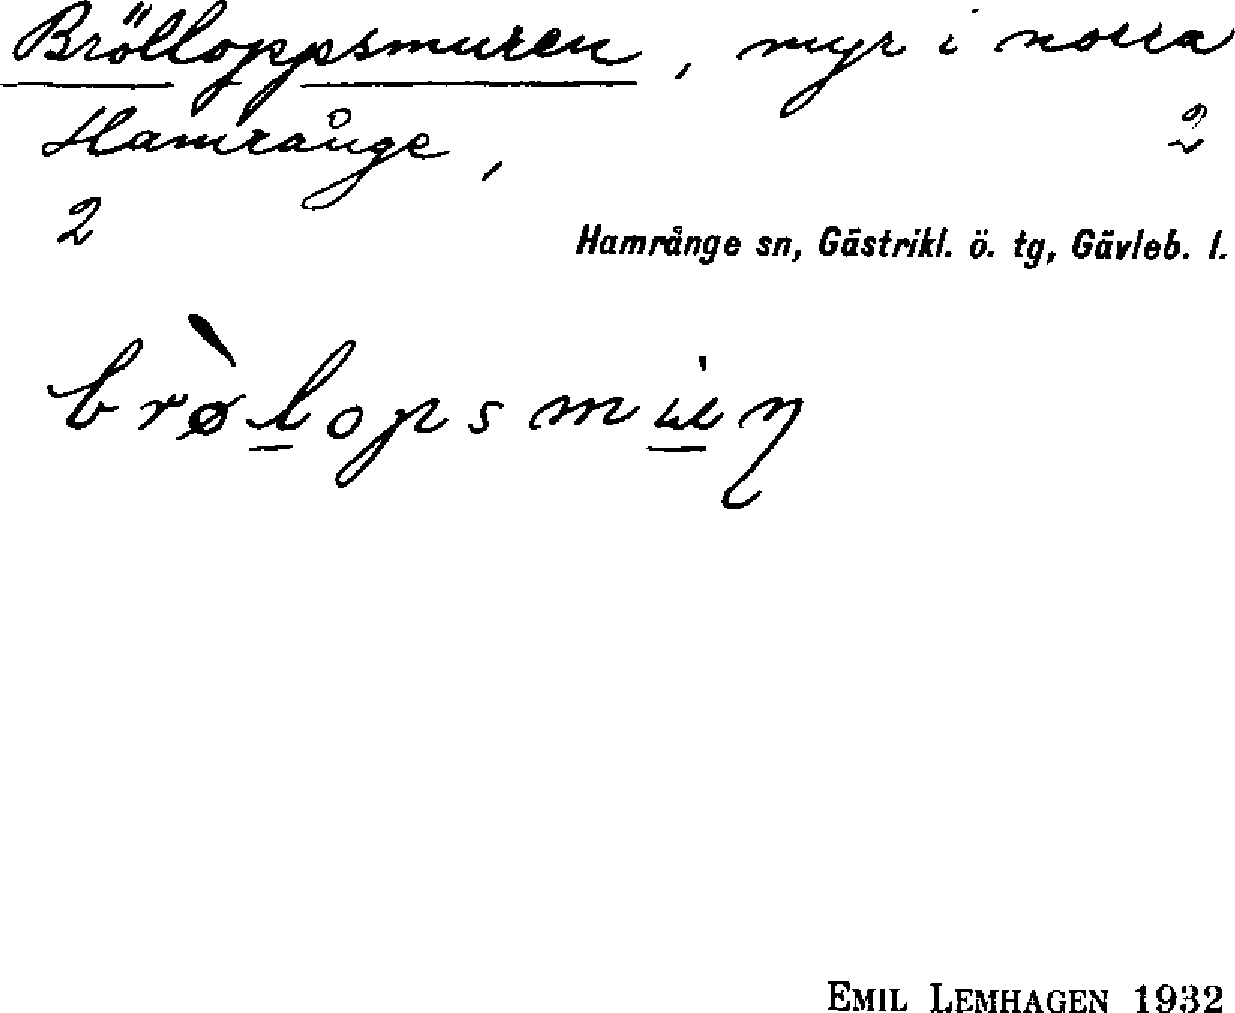 Brölloppsmuren, myr i norra
Hamrånge, 2
2
Hamrånge sn, Gästrikl. ö. tg, Gävleb. l.
brø̀lopsmu̇ŋ
EMIL LEMHAGEN 1932